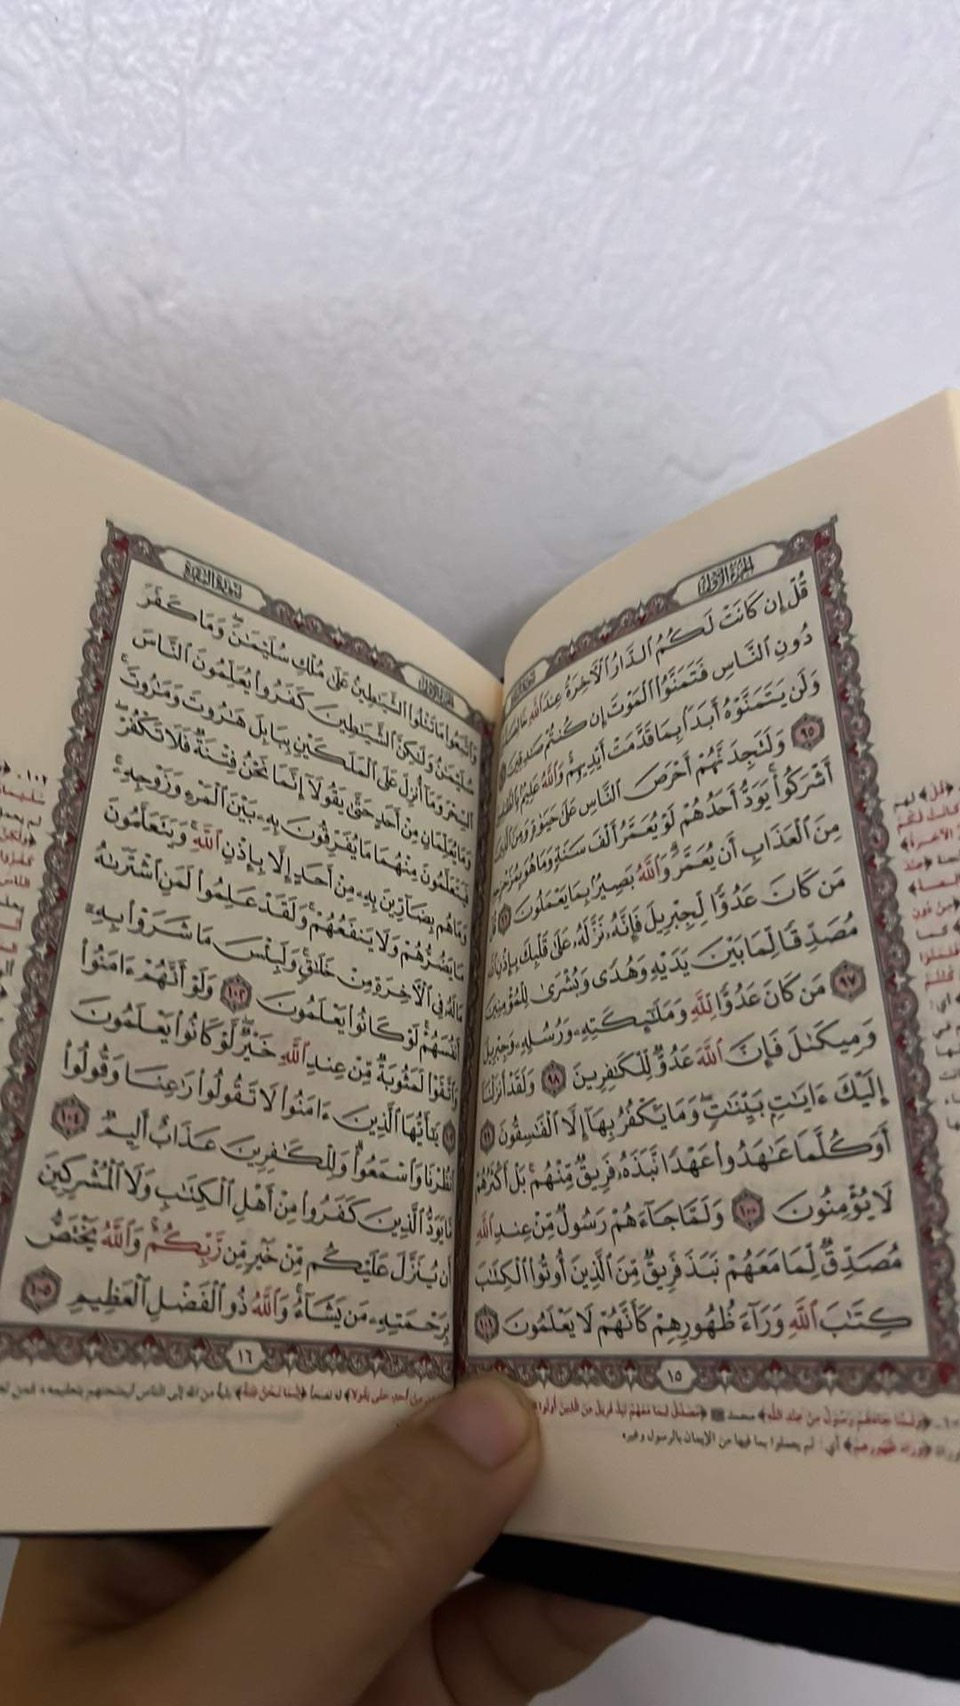 الجزء الأول
قُلْ إِن كَانَتْ لَكُمُ ٱلدَّارُ ٱلْأَخِرَةُ عِندَ ٱللَّهِ خَالِصَةً
دُونِ ٱلنَّاسِ فَتَمَنَّوُا۟ ٱلْمَوْتَ إِن كُنتُمْ صَٰدِقِينَ
وَلَن يَتَمَنَّوْهُ أَبَدًۢا بِمَا قَدَّمَتْ أَيْدِيهِمْ وَٱللَّهُ عَلِيمٌۢ
٩٥ وَلَتَجِدَنَّهُمْ أَحْرَصَ ٱلنَّاسِ عَلَىٰ حَيَوٰةٍ وَمِنَ ٱلَّذِينَ
أَشْرَكُوا۟ يَوَدُّ أَحَدُهُمْ لَوْ يُعَمَّرُ أَلْفَ سَنَةٍ وَمَا هُوَ بِمُزَحْزِحِهِ
مِنَ ٱلْعَذَابِ أَن يُعَمَّرَ وَٱللَّهُ بَصِيرٌۢ بِمَا يَعْمَلُونَ ٩٦ قُلْ
مَن كَانَ عَدُوًّا لِّجِبْرِيلَ فَإِنَّهُۥ نَزَّلَهُۥ عَلَىٰ قَلْبِكَ بِإِذْنِ ٱللَّهِ
مُصَدِّقًا لِّمَا بَيْنَ يَدَيْهِ وَهُدًى وَبُشْرَىٰ لِلْمُؤْمِنِينَ
٩٧ مَن كَانَ عَدُوًّا لِّلَّهِ وَمَلَٰٓئِكَتِهِۦ وَرُسُلِهِۦ وَجِبْرِيلَ
وَمِيكَىٰلَ فَإِنَّ ٱللَّهَ عَدُوٌّ لِّلْكَٰفِرِينَ ٩٨ وَلَقَدْ أَنزَلْنَآ
إِلَيْكَ ءَايَٰتٍۭ بَيِّنَٰتٍ وَمَا يَكْفُرُ بِهَآ إِلَّا ٱلْفَٰسِقُونَ ٩٩
أَوَكُلَّمَا عَٰهَدُوا۟ عَهْدًا نَّبَذَهُۥ فَرِيقٌ مِّنْهُم بَلْ أَكْثَرُهُمْ
لَا يُؤْمِنُونَ ١٠٠ وَلَمَّا جَآءَهُمْ رَسُولٌ مِّنْ عِندِ ٱللَّهِ
مُصَدِّقٌ لِّمَا مَعَهُمْ نَبَذَ فَرِيقٌ مِّنَ ٱلَّذِينَ أُوتُوا۟ ٱلْكِتَٰبَ
كِتَٰبَ ٱللَّهِ وَرَآءَ ظُهُورِهِمْ كَأَنَّهُمْ لَا يَعْلَمُونَ ١٠١
١٥
﴿وَلَمَّا جَاءَهُمْ رَسُولٌ مِنْ عِنْدِ اللَّهِ﴾ محمد ﷺ ﴿مُصَدِّقٌ لِمَا مَعَهُمْ نَبَذَ فَرِيقٌ مِنَ الَّذِينَ أُوتُوا
﴿وَرَاءَ ظُهُورِهِمْ﴾ أي: لم يعملوا بما فيها من الإيمان بالرسول وغيره
سورة البقرة
الجزء الأول
وَٱتَّبَعُوا۟ مَا تَتْلُوا۟ ٱلشَّيَٰطِينُ عَلَىٰ مُلْكِ سُلَيْمَٰنَ وَمَا كَفَرَ
سُلَيْمَٰنُ وَلَٰكِنَّ ٱلشَّيَٰطِينَ كَفَرُوا۟ يُعَلِّمُونَ ٱلنَّاسَ
ٱلسِّحْرَ وَمَآ أُنزِلَ عَلَى ٱلْمَلَكَيْنِ بِبَابِلَ هَٰرُوتَ وَمَٰرُوتَ
وَمَا يُعَلِّمَانِ مِنْ أَحَدٍ حَتَّىٰ يَقُولَآ إِنَّمَا نَحْنُ فِتْنَةٌ فَلَا تَكْفُرْ
فَيَتَعَلَّمُونَ مِنْهُمَا مَا يُفَرِّقُونَ بِهِۦ بَيْنَ ٱلْمَرْءِ وَزَوْجِهِۦ
وَمَا هُم بِضَآرِّينَ بِهِۦ مِنْ أَحَدٍ إِلَّا بِإِذْنِ ٱللَّهِ وَيَتَعَلَّمُونَ
مَا يَضُرُّهُمْ وَلَا يَنفَعُهُمْ وَلَقَدْ عَلِمُوا۟ لَمَنِ ٱشْتَرَىٰهُ
مَا لَهُۥ فِى ٱلْأَخِرَةِ مِنْ خَلَٰقٍ وَلَبِئْسَ مَا شَرَوْا۟ بِهِۦٓ
أَنفُسَهُمْ لَوْ كَانُوا۟ يَعْلَمُونَ ١٠٢ وَلَوْ أَنَّهُمْ ءَامَنُوا۟
وَٱتَّقَوْا۟ لَمَثُوبَةٌ مِّنْ عِندِ ٱللَّهِ خَيْرٌ لَّوْ كَانُوا۟ يَعْلَمُونَ
يَٰٓأَيُّهَا ٱلَّذِينَ ءَامَنُوا۟ لَا تَقُولُوا۟ رَٰعِنَا وَقُولُوا۟
ٱنظُرْنَا وَٱسْمَعُوا۟ وَلِلْكَٰفِرِينَ عَذَابٌ أَلِيمٌ ١٠٤
مَّا يَوَدُّ ٱلَّذِينَ كَفَرُوا۟ مِنْ أَهْلِ ٱلْكِتَٰبِ وَلَا ٱلْمُشْرِكِينَ
أَن يُنَزَّلَ عَلَيْكُم مِّنْ خَيْرٍ مِّن رَّبِّكُمْ وَٱللَّهُ يَخْتَصُّ
بِرَحْمَتِهِۦ مَن يَشَآءُ وَٱللَّهُ ذُو ٱلْفَضْلِ ٱلْعَظِيمِ ١٠٥
١٦